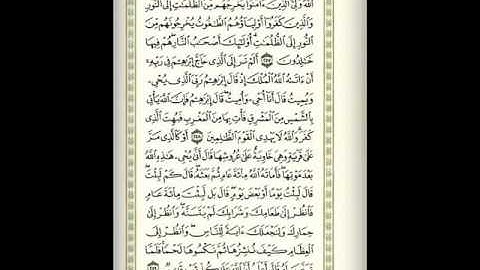 ٱللَّهُ وَلِيُّ ٱلَّذِينَ ءَامَنُوا۟ يُخْرِجُهُم مِّنَ ٱلظُّلُمَٰتِ إِلَى ٱلنُّورِ
وَٱلَّذِينَ كَفَرُوٓا۟ أَوْلِيَآؤُهُمُ ٱلطَّٰغُوتُ يُخْرِجُونَهُم مِّنَ
ٱلنُّورِ إِلَى ٱلظُّلُمَٰتِ أُو۟لَٰٓئِكَ أَصْحَٰبُ ٱلنَّارِ هُمْ فِيهَا
خَٰلِدُونَ ٢٥٧ أَلَمْ تَرَ إِلَى ٱلَّذِى حَآجَّ إِبْرَٰهِۦمَ فِى رَبِّهِۦٓ
أَنْ ءَاتَىٰهُ ٱللَّهُ ٱلْمُلْكَ إِذْ قَالَ إِبْرَٰهِۦمُ رَبِّىَ ٱلَّذِى يُحْىِۦ
وَيُمِيتُ قَالَ أَنَا۠ أُحْىِۦ وَأُمِيتُ قَالَ إِبْرَٰهِۦمُ فَإِنَّ ٱللَّهَ يَأْتِى
بِٱلشَّمْسِ مِنَ ٱلْمَشْرِقِ فَأْتِ بِهَا مِنَ ٱلْمَغْرِبِ فَبُهِتَ ٱلَّذِى
كَفَرَ وَٱللَّهُ لَا يَهْدِى ٱلْقَوْمَ ٱلظَّٰلِمِينَ ٢٥٨ أَوْ كَٱلَّذِى مَرَّ
عَلَىٰ قَرْيَةٍ وَهِىَ خَاوِيَةٌ عَلَىٰ عُرُوشِهَا قَالَ أَنَّىٰ يُحْىِۦ هَٰذِهِ ٱللَّهُ
بَعْدَ مَوْتِهَا فَأَمَاتَهُ ٱللَّهُ مِا۟ئَةَ عَامٍ ثُمَّ بَعَثَهُۥ قَالَ كَمْ لَبِثْتَ
قَالَ لَبِثْتُ يَوْمًا أَوْ بَعْضَ يَوْمٍ قَالَ بَل لَّبِثْتَ مِا۟ئَةَ عَامٍ
فَٱنظُرْ إِلَىٰ طَعَامِكَ وَشَرَابِكَ لَمْ يَتَسَنَّهْ وَٱنظُرْ إِلَىٰ
حِمَارِكَ وَلِنَجْعَلَكَ ءَايَةً لِّلنَّاسِ وَٱنظُرْ إِلَى
ٱلْعِظَامِ كَيْفَ نُنشِزُهَا ثُمَّ نَكْسُوهَا لَحْمًا فَلَمَّا
تَبَيَّنَ لَهُۥ قَالَ أَعْلَمُ أَنَّ ٱللَّهَ عَلَىٰ كُلِّ شَىْءٍ قَدِيرٌ ٢٥٩